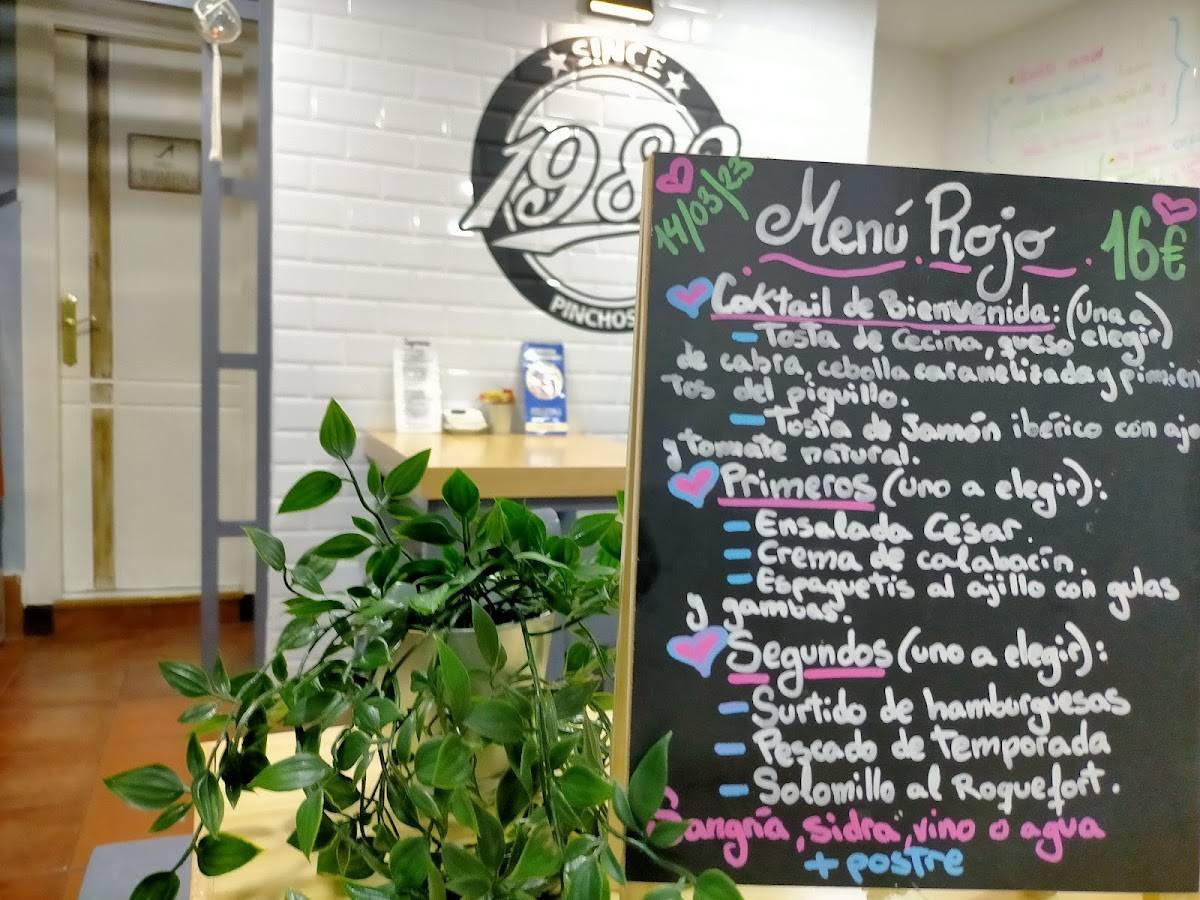 SINCE
PINCHOS
14/03/23
Menú Rojo
16€
Coktail de Bienvenida: (Una a elegir)
- Tosta de Cecina, queso
de cabra, cebolla caramelizada y pimien
tos del piquillo.
- Tosta de Jamón ibérico con ajo
y tomate natural.
Primeros (uno a elegir):
- Ensalada César.
- Crema de calabacín.
- Espaguetis al ajillo con gulas
y gambas.
Segundos (uno a elegir):
- Surtido de hamburguesas
- Pescado de temporada
- Solomillo al Roquefort.
Sangría, sidra, vino o agua
+ postre